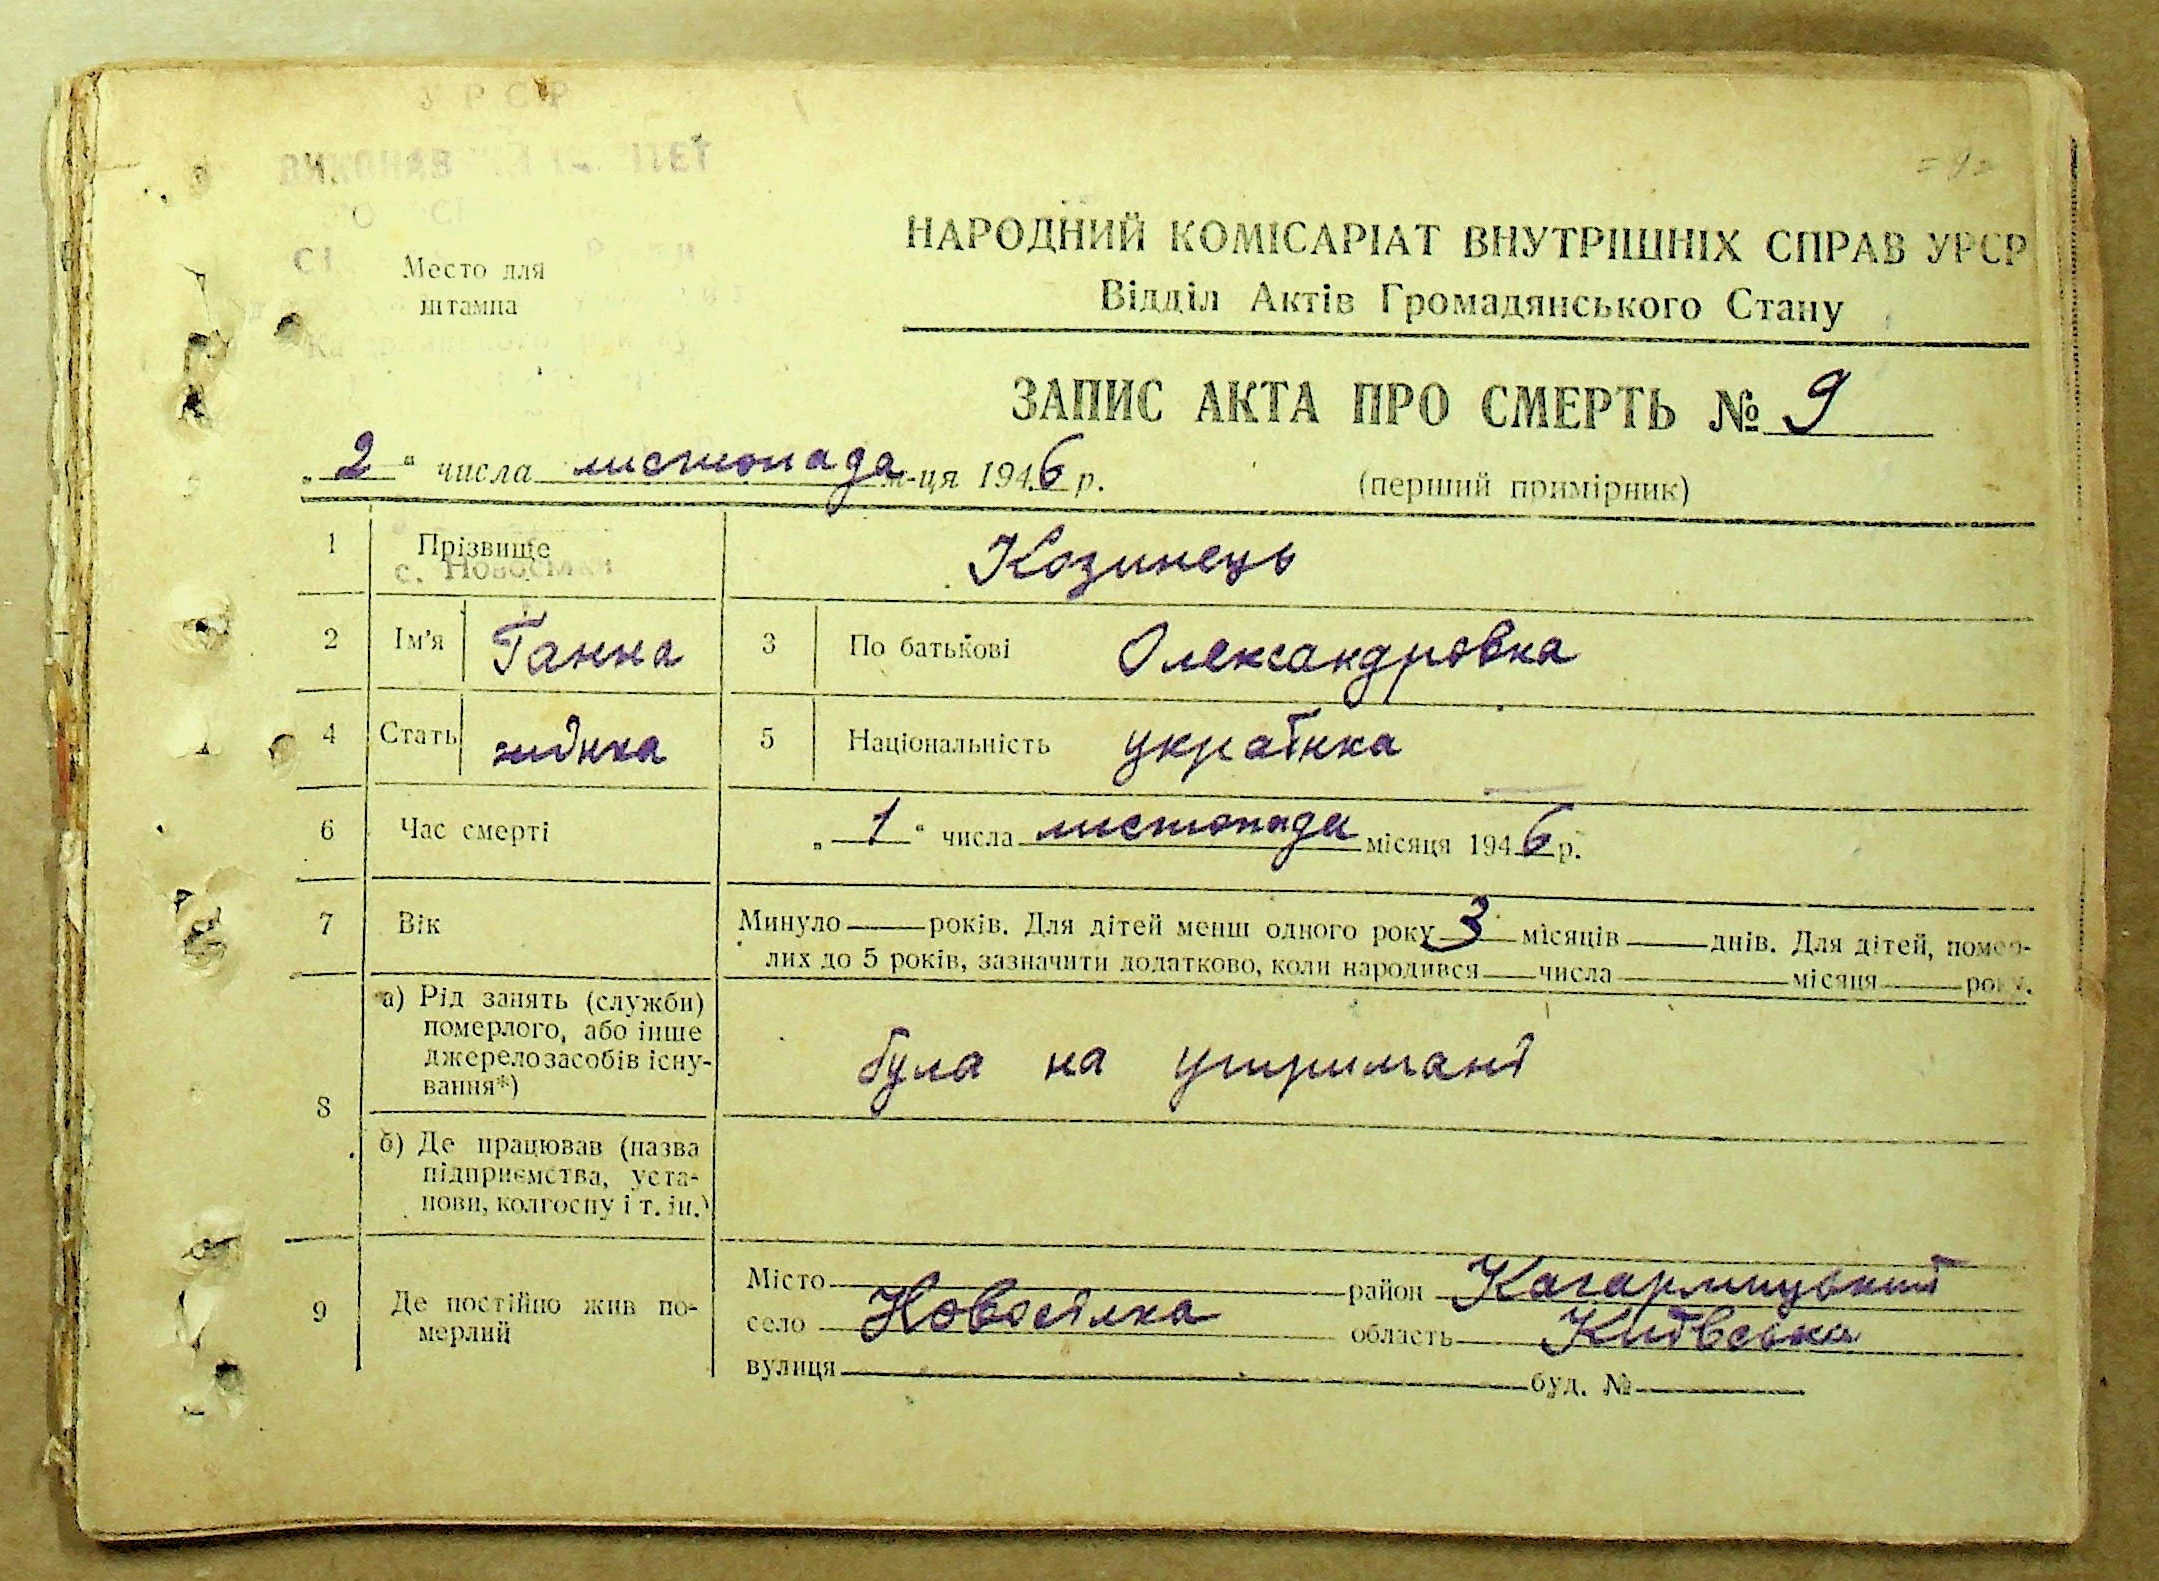 УРСР
Место для
штампа
НАРОДНИЙ КОМІСАРІАТ ВНУТРІШНІХ СПРАВ УРСР
Відділ Актів Громадянського Стану
ЗАПИС АКТА ПРО СМЕРТЬ № 9
„ 2 “ числа листопада м-ця 1946 р.
(перший примірник)
1 Прізвище Козинець
с. Новосілки
2 Ім'я Ганна 3 По батькові Олександровна
4 Стать жінка 5 Національність українка
6 Час смерті „ 1 “ числа листопада місяця 1946 р.
7 Вік Минуло —— років. Для дітей менш одного року 3 місяців —— днів. Для дітей, помер-
лих до 5 років, зазначити додатково, коли народився —— числа —— місяця —— року.
8 а) Рід занять (служби)
померлого, або інше
джерело засобів існу-
вання*)
була на утримані
б) Де працював (назва
підприємства, уста-
нови, колгоспу і т. ін.)
9 Де постійно жив по-
мерлий
Місто район Кагарлицький
село Новосілка область Київська
вулиця буд. №